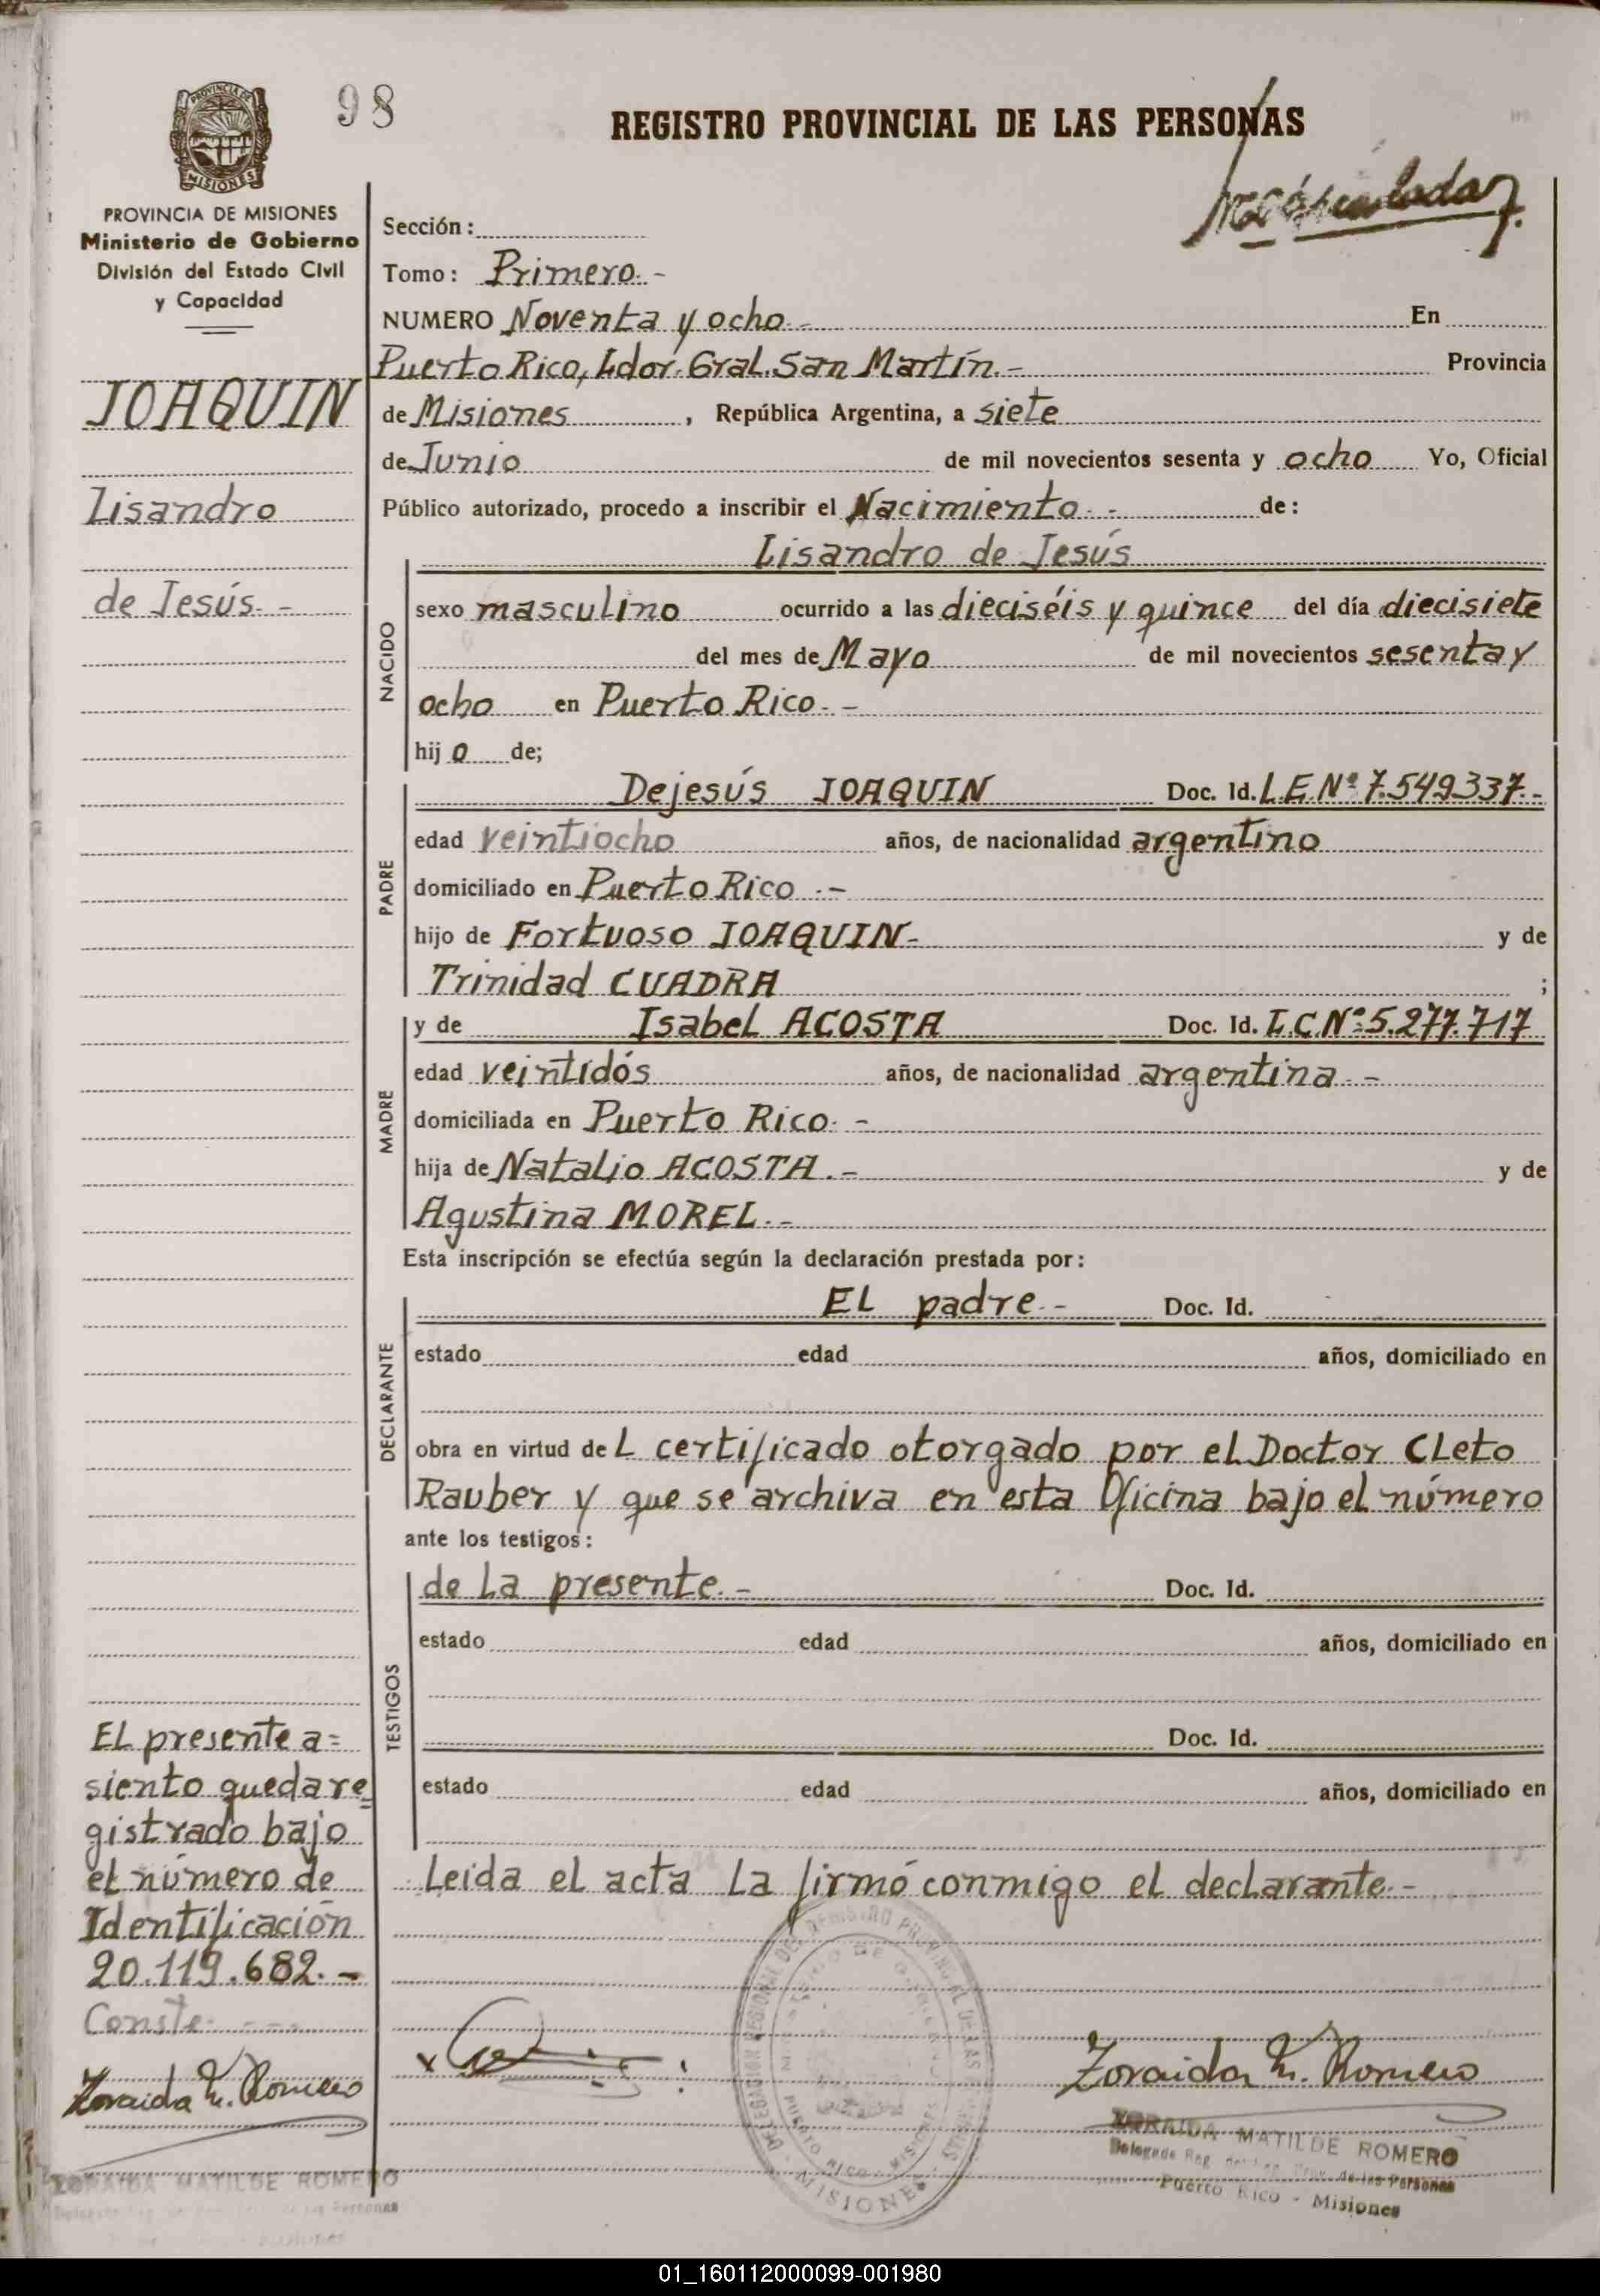 98
REGISTRO PROVINCIAL DE LAS PERSONAS
PROVINCIA DE
MISIONES
PROVINCIA DE MISIONES
Ministerio de Gobierno
División del Estado Civil
y Capacidad
JOAQUIN
Lisandro
de Jesús. -
El presente a=
siento queda re=
gistrado bajo
el número de
Identificación
20.119.682. -
Conste. - - -
Zoraida M. Romero
ZORAIDA MATILDE ROMERO
Sección:
Tomo: Primero. -
NUMERO Noventa y ocho. - En
Puerto Rico, Ldor. Gral. San Martín. - Provincia
de Misiones , República Argentina, a siete
de Junio de mil novecientos sesenta y ocho Yo, Oficial
Público autorizado, procedo a inscribir el Nacimiento. - de:
Lisandro de Jesús
NACIDO
sexo masculino ocurrido a las dieciséis y quince del día diecisiete
del mes de Mayo de mil novecientos sesenta y
ocho en Puerto Rico. -
hij o de;
PADRE
Dejesús JOAQUIN Doc. Id. L.E.Nº 7.549.337. -
edad veintiocho años, de nacionalidad argentino
domiciliado en Puerto Rico . -
hijo de Fortuoso JOAQUIN - y de
Trinidad CUADRA ;
MADRE
y de Isabel ACOSTA Doc. Id. L.C.Nº 5.277.717
edad veintidós años, de nacionalidad argentina . -
domiciliada en Puerto Rico. -
hija de Natalio ACOSTA. - y de
Agustina MOREL. -
Esta inscripción se efectúa según la declaración prestada por:
DECLARANTE
El padre. - Doc. Id.
estado edad años, domiciliado en
obra en virtud de l certificado otorgado por el Doctor Cleto
Rauber y que se archiva en esta Oficina bajo el número
ante los testigos:
TESTIGOS
de la presente. - Doc. Id.
estado edad años, domiciliado en
Doc. Id.
estado edad años, domiciliado en
Leida el acta la firmó conmigo el declarante. -
DELEGACION REGIONAL DEL REGISTRO PROVINCIAL DE LAS PERSONAS
MINISTERIO DE GOBIERNO
PUERTO RICO - MISIONES
MISIONES
Zoraida M. Romero
ZORAIDA MATILDE ROMERO
Delegada Reg. del Reg. Prov. de las Personas
Puerto Rico - Misiones
01_160112000099-001980